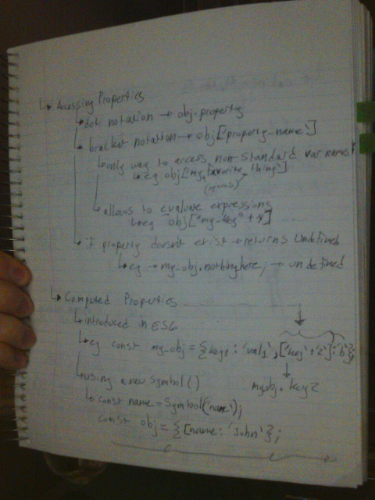 ↳ Accessing Properties
↳ dot notation → obj.property
↳ bracket notation → obj[property-name]
↳ only way to access non-standard var names
↳ eg obj["my favourite thing"]
↳ allows to evaluate expressions
↳ eg obj["my-key" + x]
↳ if property doesnt exist → returns undefined
↳ eg → my-obj.nothinghere; → undefined
↳ Computed Properties
↳ introduced in ES6
↳ eg const my_obj = {key1: 'val1', ['key'+'2']: 'b'};
my_obj.key2
↳ using a new Symbol()
↳ const name = Symbol('name');
const obj = {[name: 'John'};